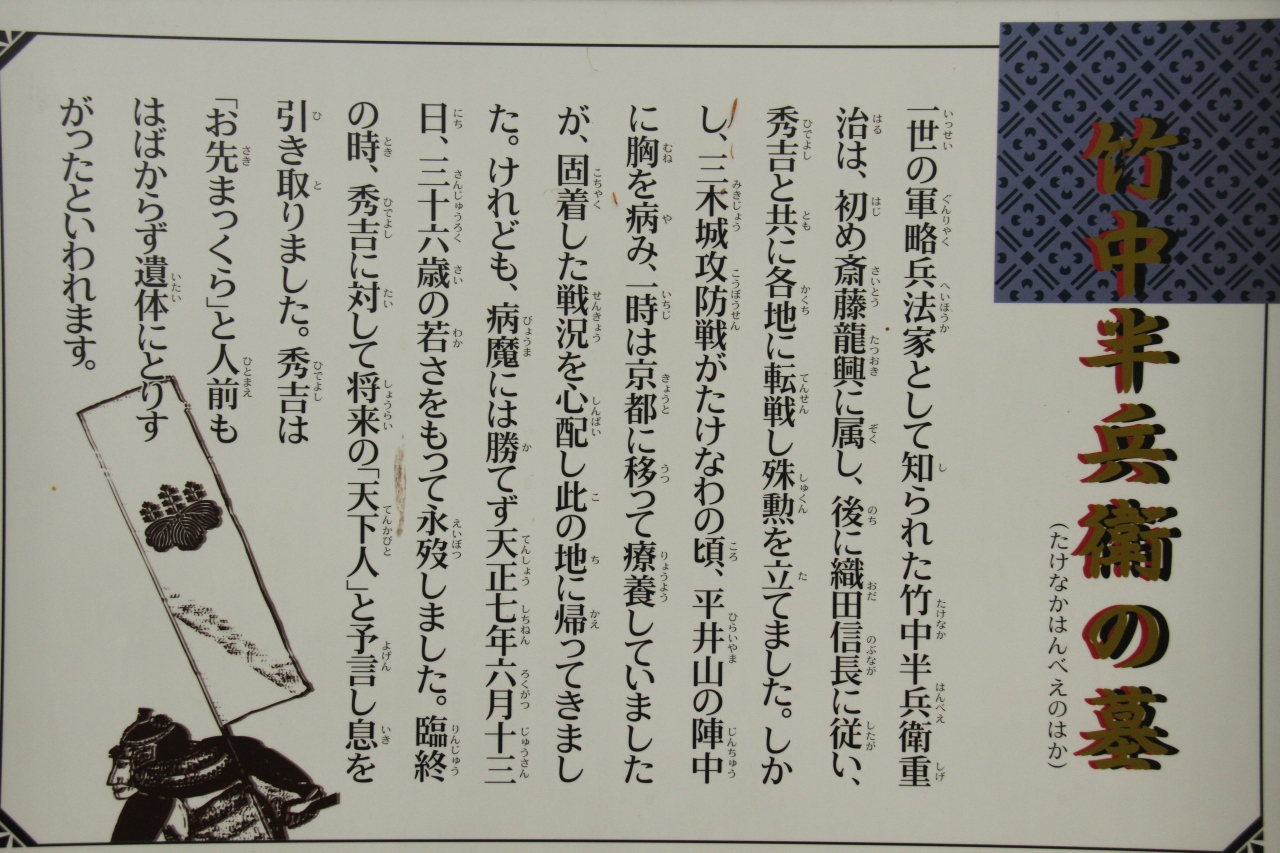 竹中半兵衛の墓
（たけなかはんべえのはか）
一世の軍略兵法家として知られた竹中半兵衛重
治は、初め斎藤龍興に属し、後に織田信長に従い、
秀吉と共に各地に転戦し殊勲を立てました。しか
し、三木城攻防戦がたけなわの頃、平井山の陣中
に胸を病み、一時は京都に移って療養していました
が、固着した戦況を心配し此の地に帰ってきまし
た。けれども、病魔には勝てず天正七年六月十三
日、三十六歳の若さをもって永歿しました。臨終
の時、秀吉に対して将来の「天下人」と予言し息を
引き取りました。秀吉は
「お先まっくら」と人前も
はばからず遺体にとりす
がったといわれます。